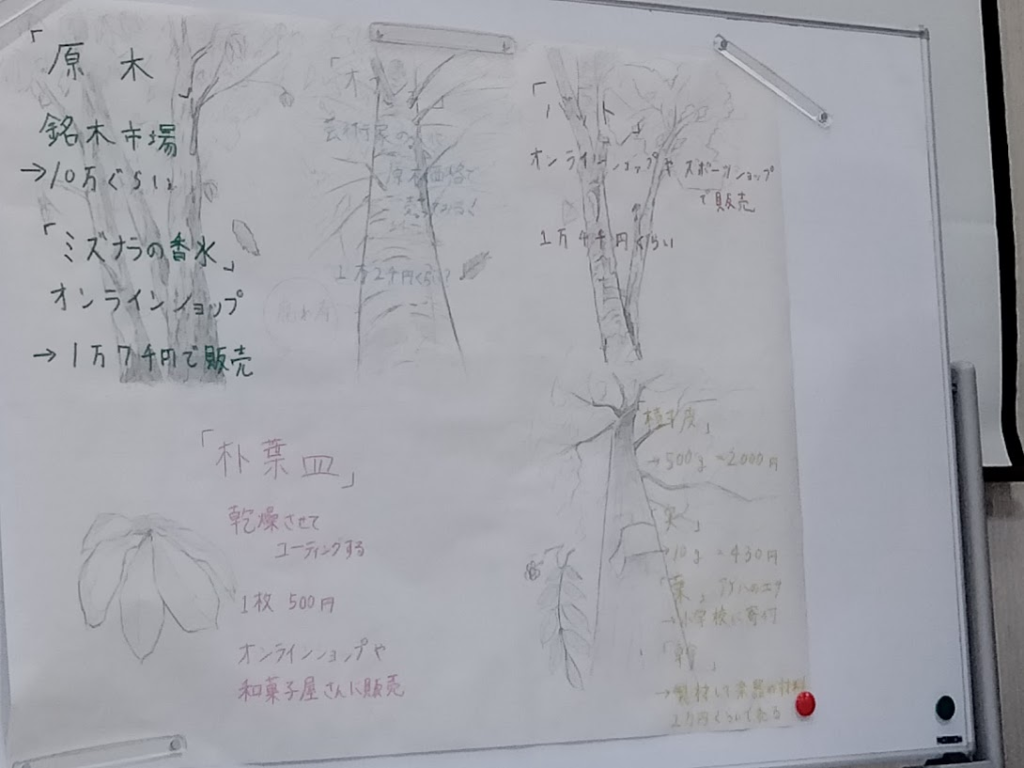 「原木」
銘木市場
→10万ぐらい
「ミズナラの香水」
オンラインショップ
→1万7千円で販売
芸術家の
原木価格で
1万2千円くらい
オンラインショップや スポーツショップ
で販売
1万4千円くらい
「朴葉皿」
乾燥させて
コーティングする
1枚 500円
オンラインショップや
和菓子屋さんに販売
→500g=2000円
→10g=430円
「葉」
→小学校に寄付
「幹」
→製材して楽器の材料